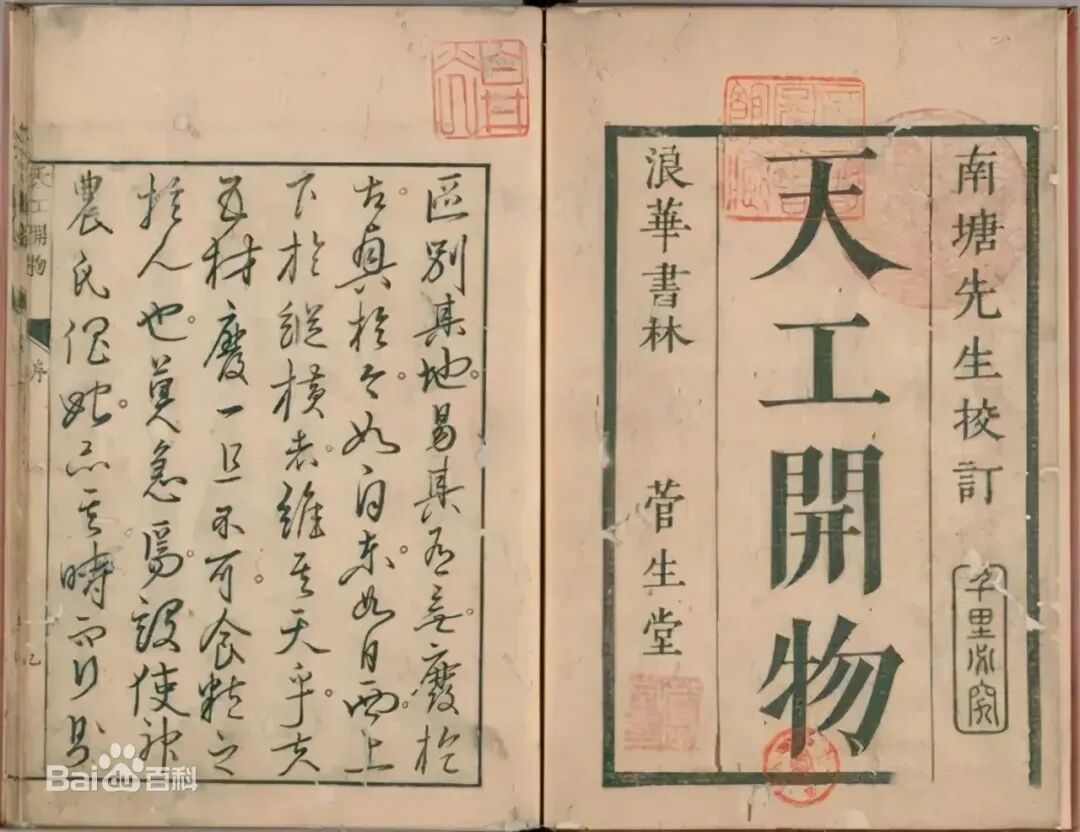 南塘先生校訂
千里必究
天工開物
浪華書林 菅生堂
區別其地。易其有無。廢於
古。興於今。如自東。如自西。上
下於縱橫者。維其天乎夫
五材廢一且不可。食粒之
於人也。莫急焉。設使神
農氏 其時而行則
天工開物 序
Bai百科